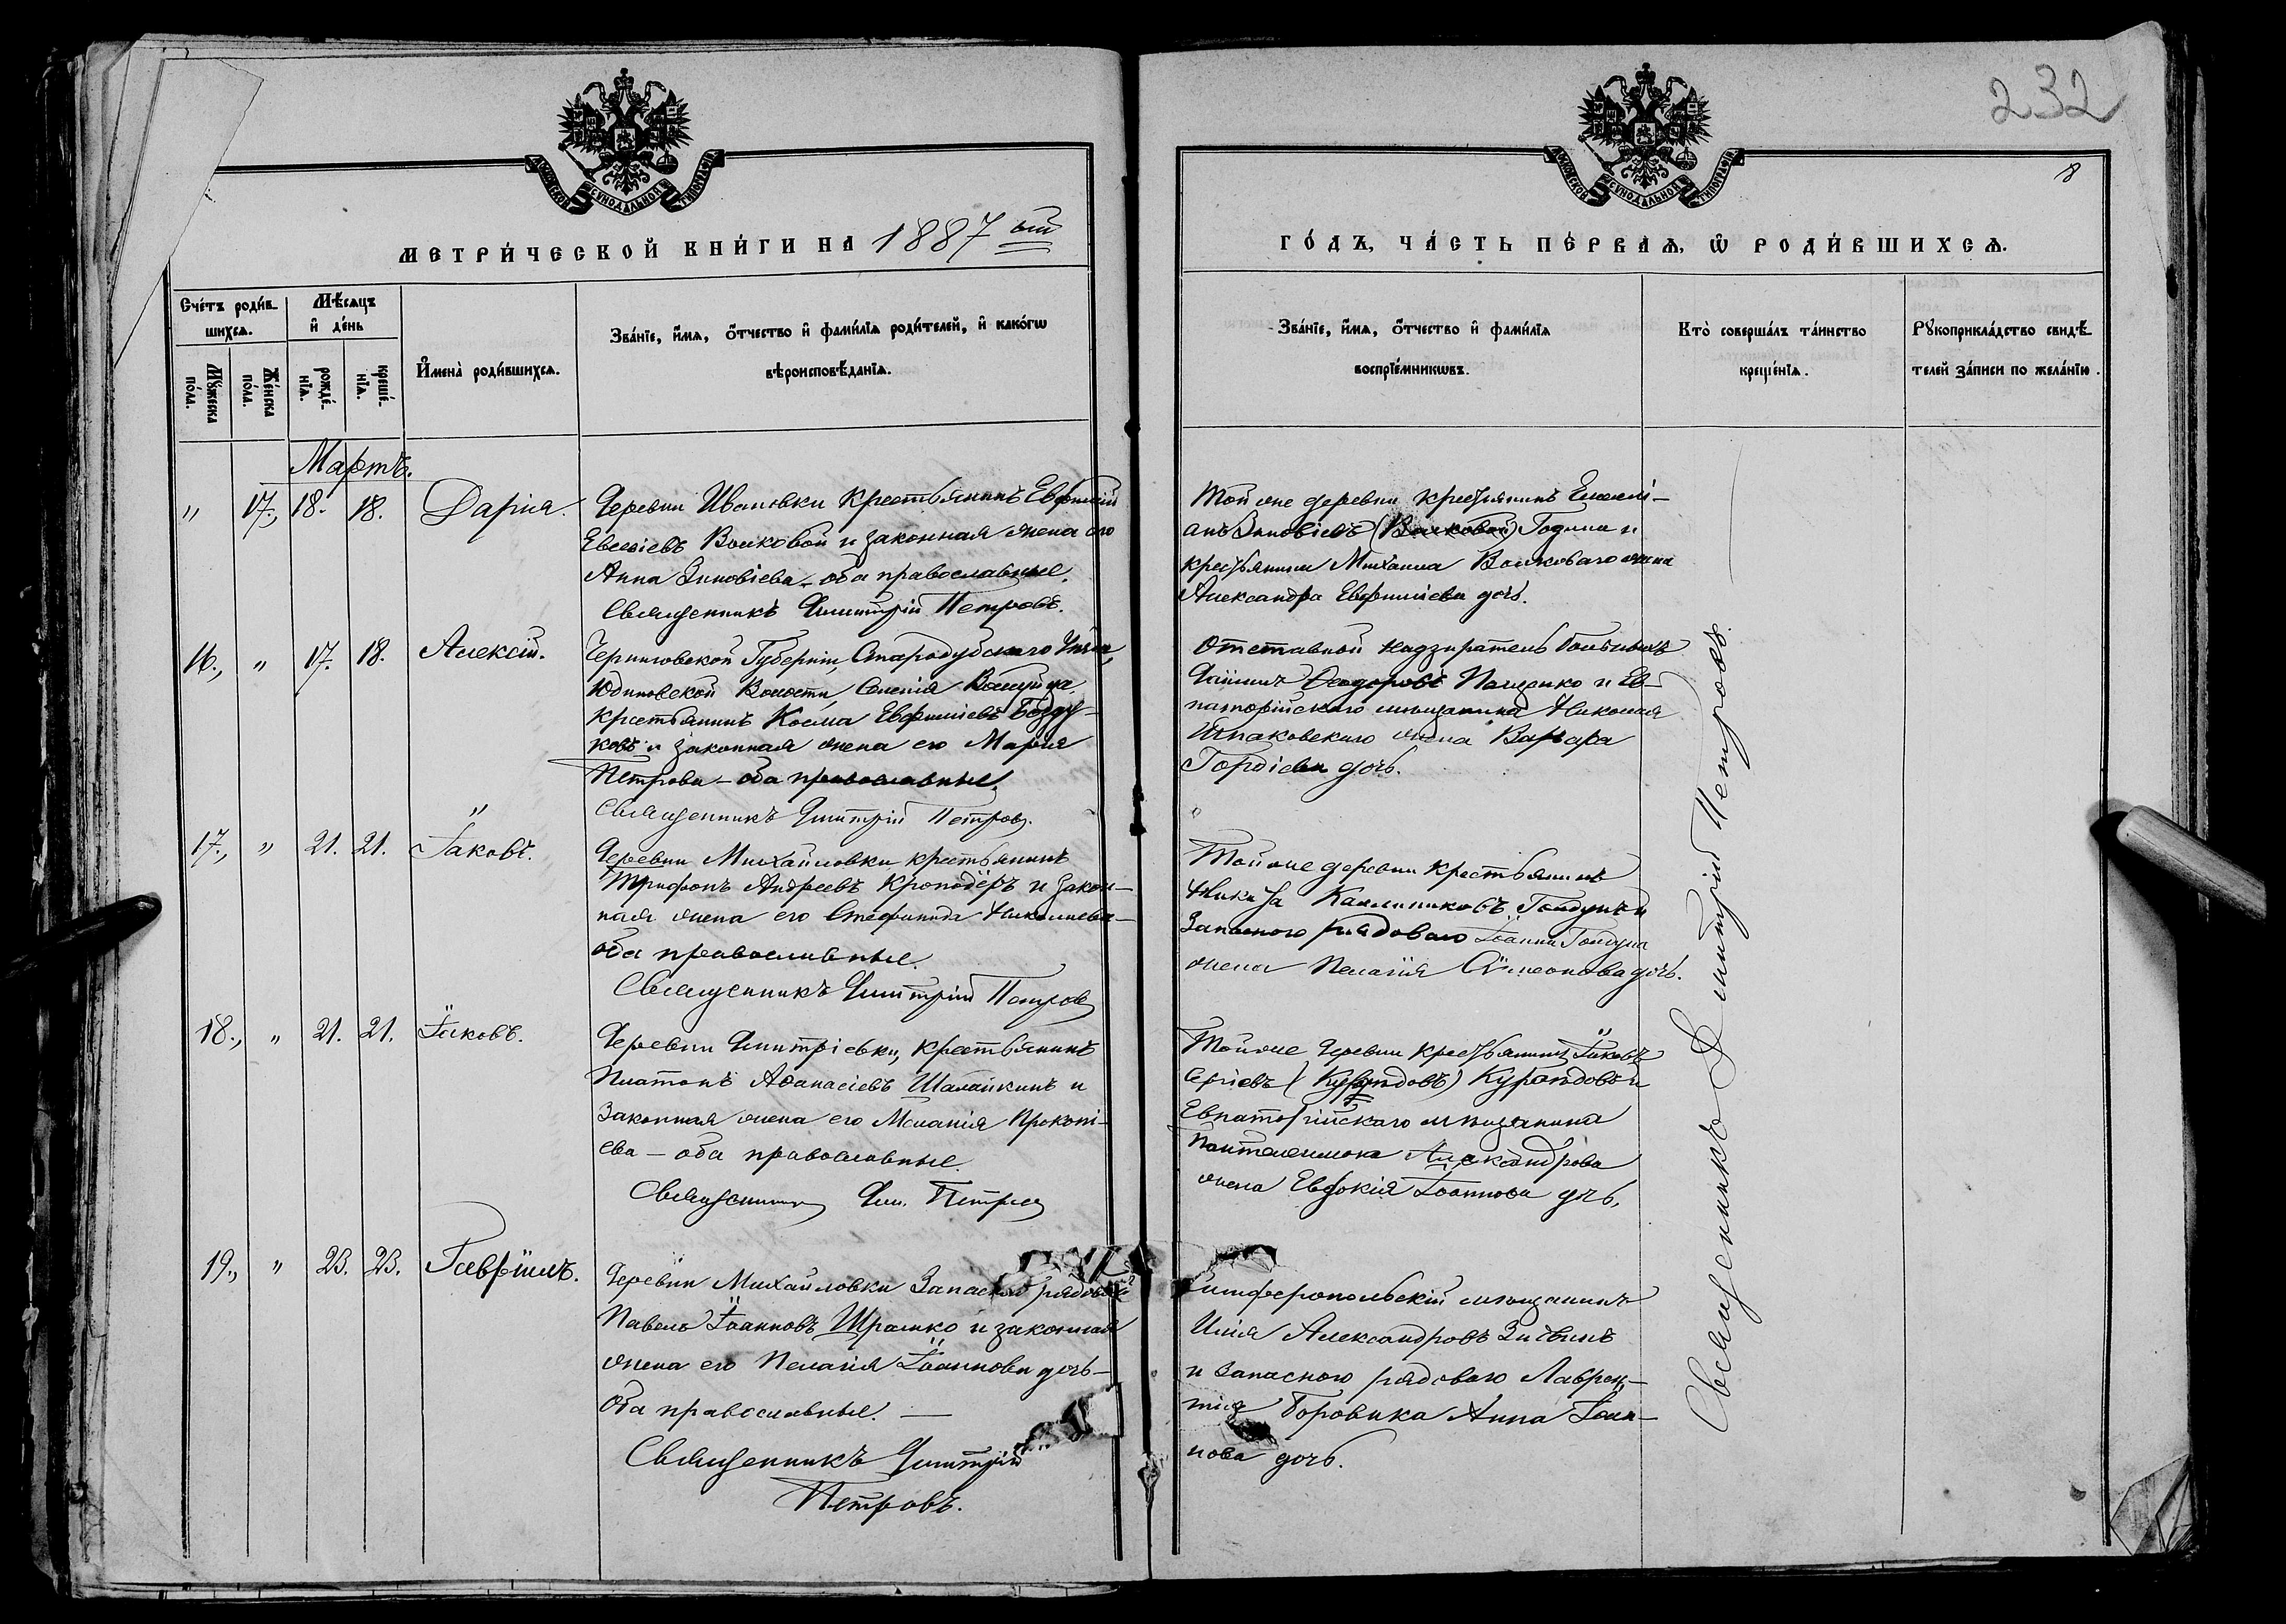 232
8
МОСКОВСКОЙ СѴНОДАЛЬНОЙ ТИПОГРАФІИ
МОСКОВСКОЙ СѴНОДАЛЬНОЙ ТИПОГРАФІИ
МЕТРИ́ЧЕСКОЙ КНИ́ГИ НА 1887 ой
ГО́ДЪ, ЧА́СТЬ ПЕ́РВАѦ, Ѿ РОДИ́ВШИХСѦ.
Сче́тъ роди́в-
шихсѧ.
Мꙋ́жеска по́ла.
Же́нска по́ла.
Мѣ́сѧцъ
и҆ де́нь
рожде́-
нїѧ.
креще́-
нїѧ.
И҆мена̀ роди́вшихсѧ.
Зва́нїе, и҆́мѧ, ѻ҆́тчество и҆ фами́лїѧ роди́телей, и҆ како́гѡ
вѣроисповѣ́данїѧ.
Зва́нїе, и҆́мѧ, ѻ҆́тчество и҆ фами́лїѧ
воспрїе́мникѡвъ.
Кто̀ соверша́лъ та́инство
креще́нїѧ.
Рꙋкоприкла́дство свидѣ́-
телей за́писи по жела́нїю.
Мартъ.
" 17., 18. 18. Дарія.
Деревни Ивановки крестьянинъ Евфимій
Евсевіевъ Волковой и законная жена его
Анна Зиновіева - оба православные.
Священникъ Димитрій Петровъ.
Той же деревни крестьянинъ Емелі-
анъ Зиновіевъ (Волковой) Година и
крестьянина Михаила Волковаго жена
Александра Евфиміева дочь.
16., " 17. 18. Алексій.
Черниговской Губерніи, Стародубскаго Уѣзда,
Юдиновской Волости, Селенія
крестьянинъ Косма Евфиміевъ Безду-
ковъ и законная жена его Марія
Петрова - оба православные.
Священникъ Димитрій Петровъ.
Отставной надзиратель больныхъ
Даніилъ Ѳеодоровъ Пащенко и Ев-
паторійскаго мѣщанина Николая
Шпаковскаго жена Варвара
Гордіева дочь.
17., " 21. 21. Іаковъ.
Деревни Михайловки крестьянинъ
Трифонъ Андреевъ Кроподёръ и закон-
ная жена его Стефанида Николаева -
оба православные.
Священникъ Димитрій Петровъ
Той же деревни крестьянинъ
Никита Каллиниковъ Голдунъ и
Запасного рядоваго Іоанна Голдуна
жена Пелагія Сѵмеонова дочь.
18., " 21. 21. Іаковъ.
Деревни Димитріевки, крестьянинъ
Платонъ Аѳанасіевъ Шалайкинъ и
Законная жена его Меланія Прокопі-
ева - оба православные.
Священникъ Дим. Петровъ
Той же Деревни крестьянинъ Іаковъ
Сергіевъ Курандовъ и
Евпаторійскаго мѣщанина
Пантелеимона Александрова
жена Евдокія Іоаннова дочь.
19., " 23. 23. Гавріилъ.
Деревни Михайловки Запасной рядовой
Павелъ Іоанновъ Шрамко и законная
жена его Пелагія Іоаннова дочь -
Оба православные. —
Священникъ Димитрій
Петровъ.
Симферопольскій мѣщанинъ
Илія Александровъ
и запасного рядоваго Лаврен-
тія Боровика Анна Іоан-
нова дочь.
Священникъ Димитрій Петровъ.